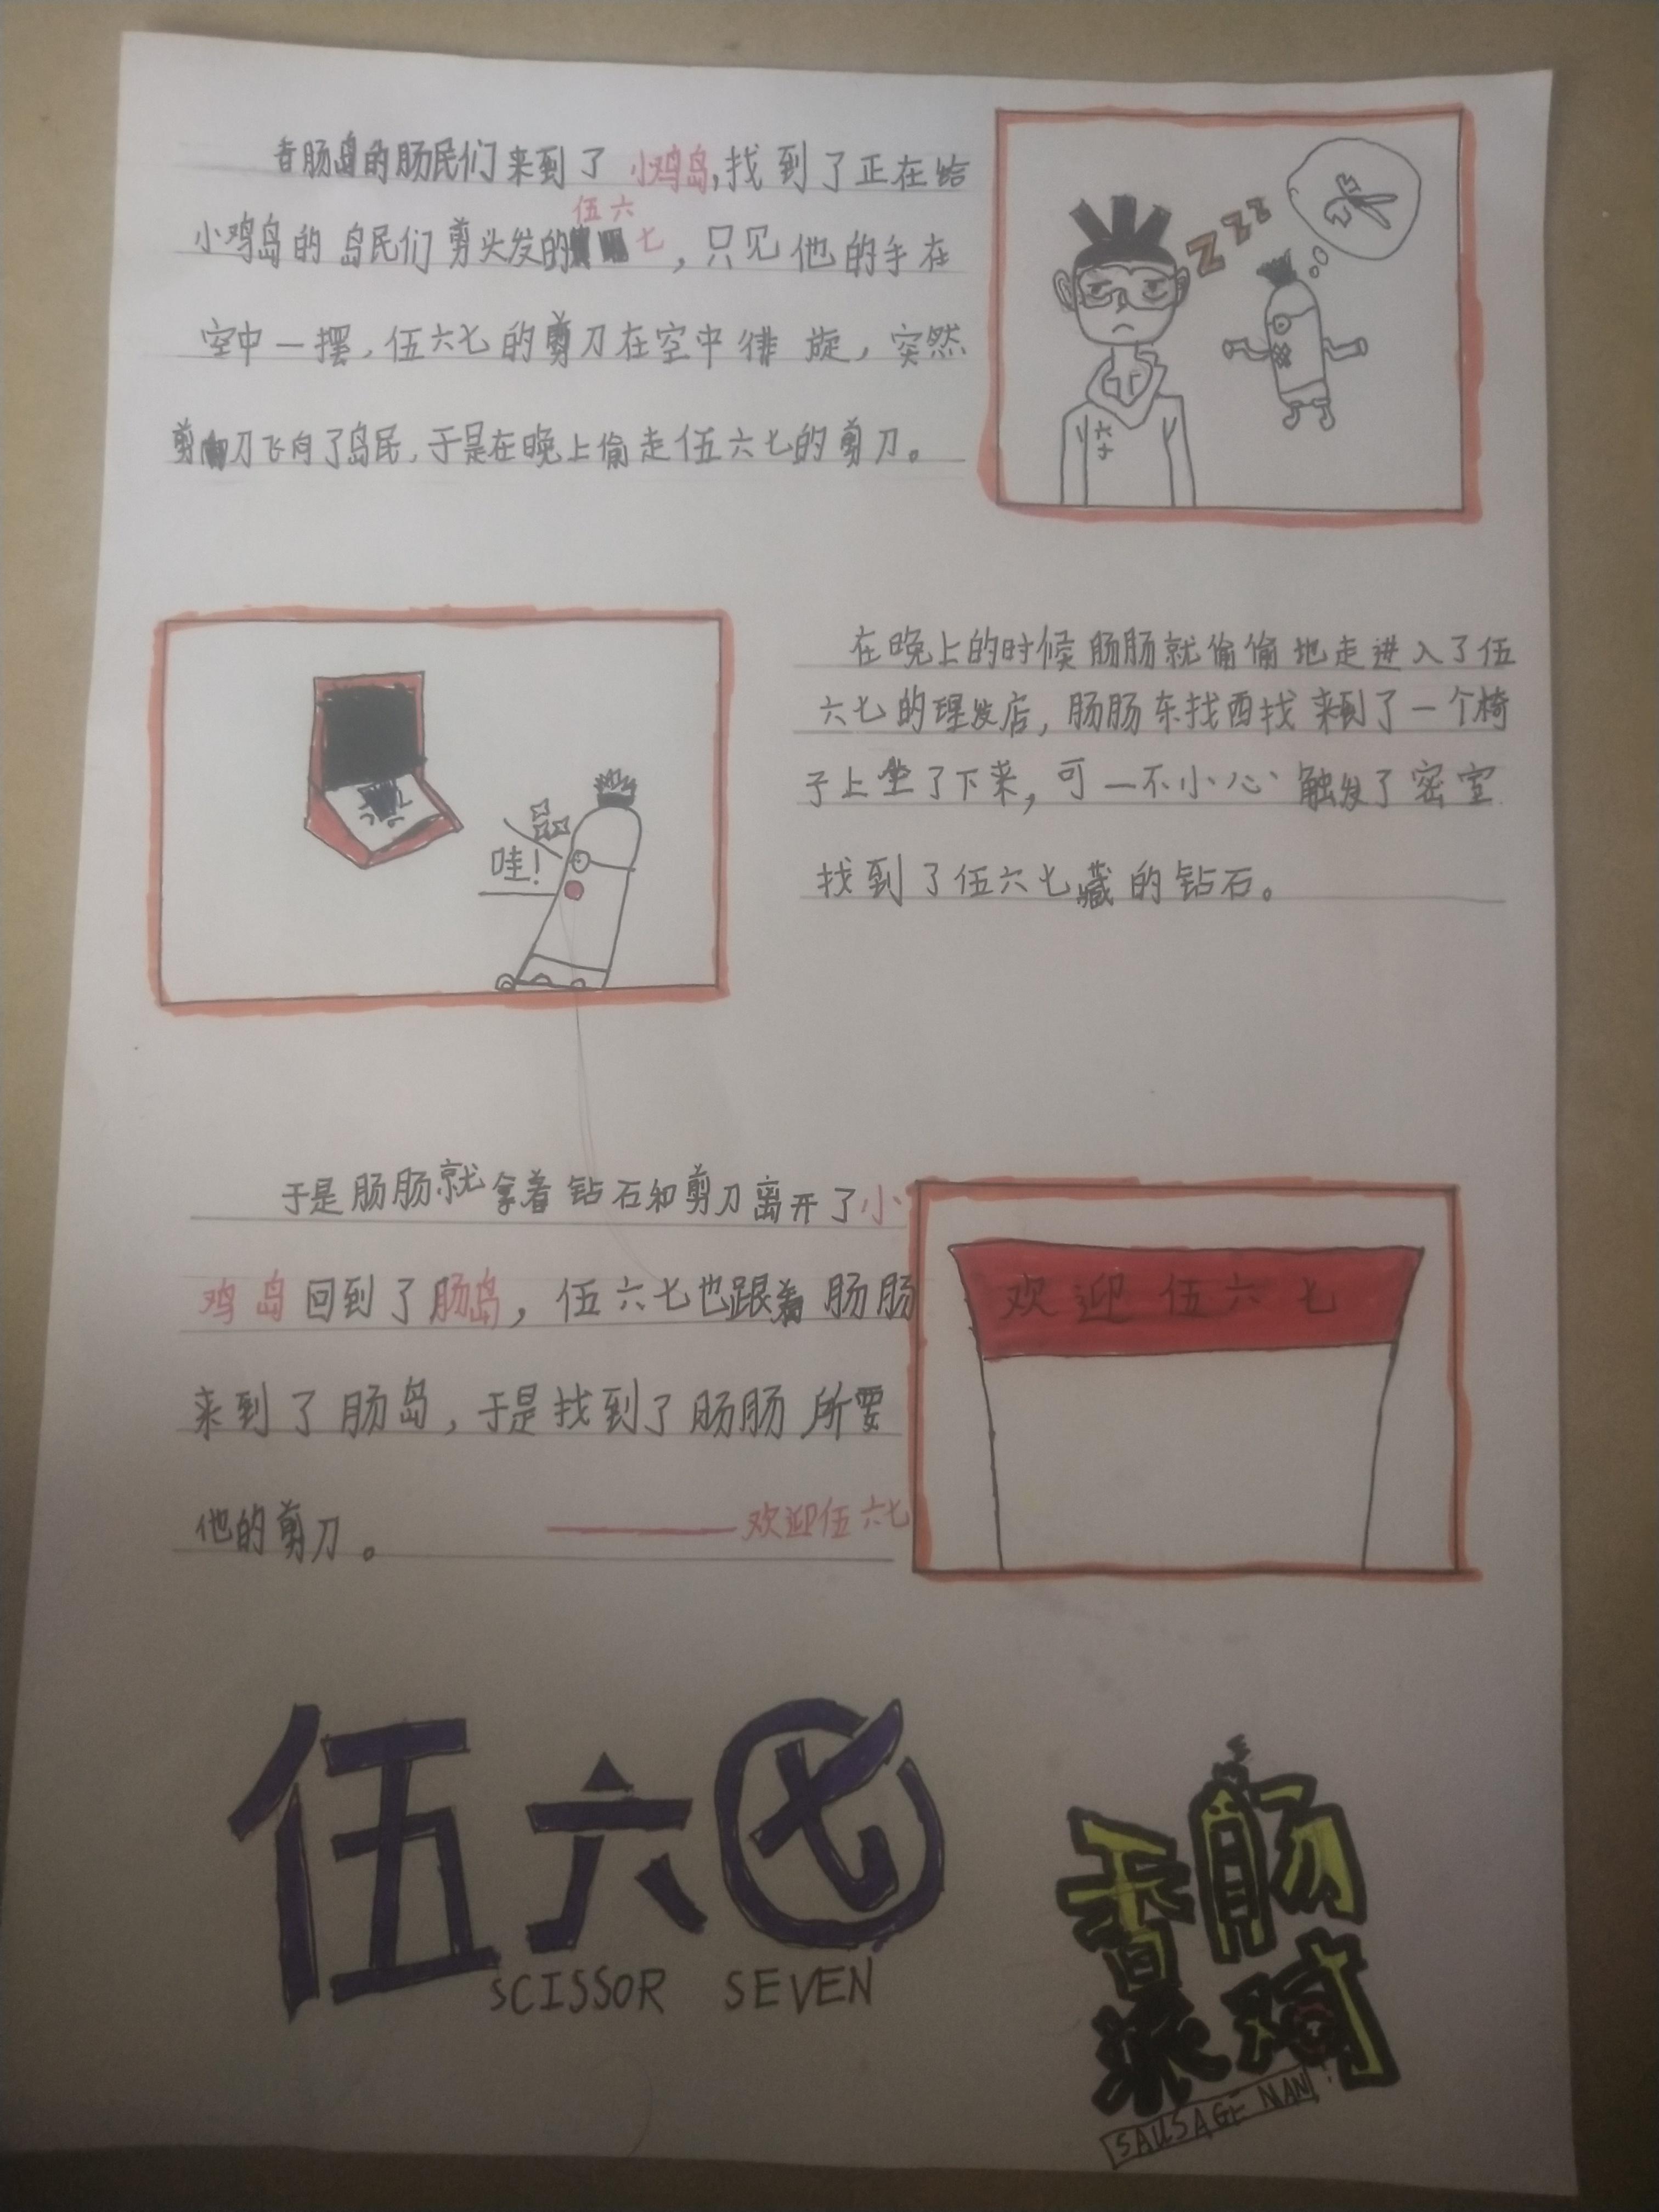 香肠岛的肠民们来到了小鸡岛,找到了正在给
小鸡岛的岛民们剪头发的伍六七，只见他的手在
空中一摆，伍六七的剪刀在空中徘旋，突然
剪刀飞向了岛民，于是在晚上偷走伍六七的剪刀。
六
七
Z Z Z
在晚上的时候肠肠就偷偷地走进入了伍
六七的理发店，肠肠东找西找来到了一个椅
子上坐了下来，可一不小心触发了密室
找到了伍六七藏的钻石。
哇！
于是肠肠就拿着钻石和剪刀离开了小
鸡岛回到了肠岛，伍六七也跟着肠肠
来到了肠岛，于是找到了肠肠所要
他的剪刀。
——欢迎伍六七
欢迎伍六七
伍六七
SCISSOR SEVEN
香肠
派对
SAUSAGE MAN